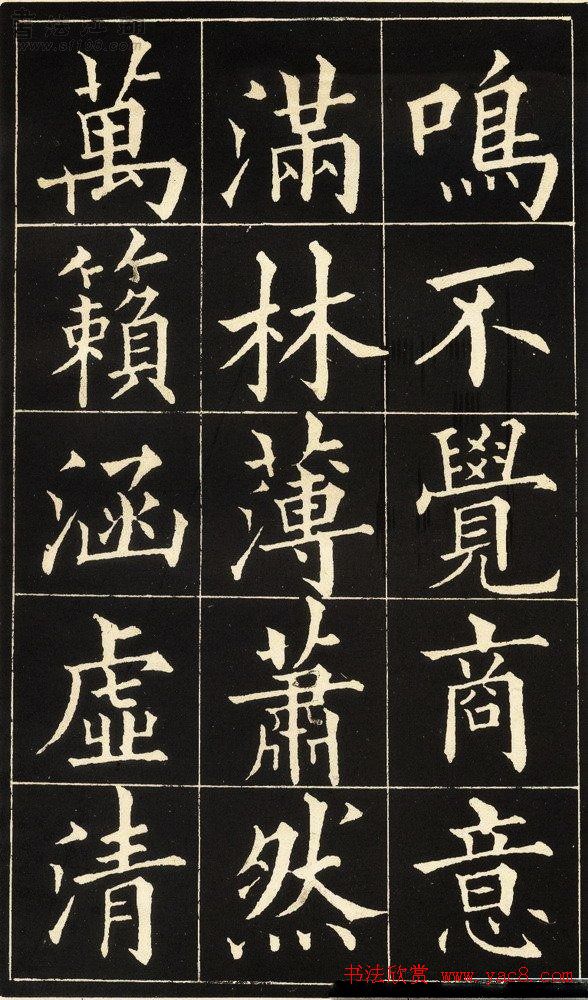 鳴不覺商意
滿林薄蕭然
萬籟涵虛清
书法欣赏 www.yac8.com